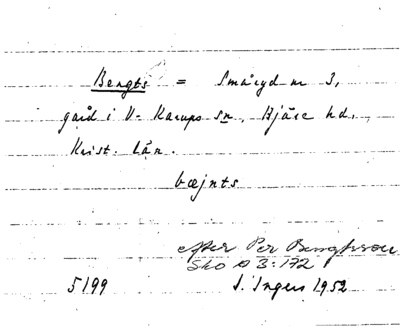 Bengts = Småryd nr 3,
gård i V. Karups sn, Bjäre hd.,
Krist. län.
bæjnts
efter Per Bengtsson
SkO A 3:172
5199 I. Ingers 1952